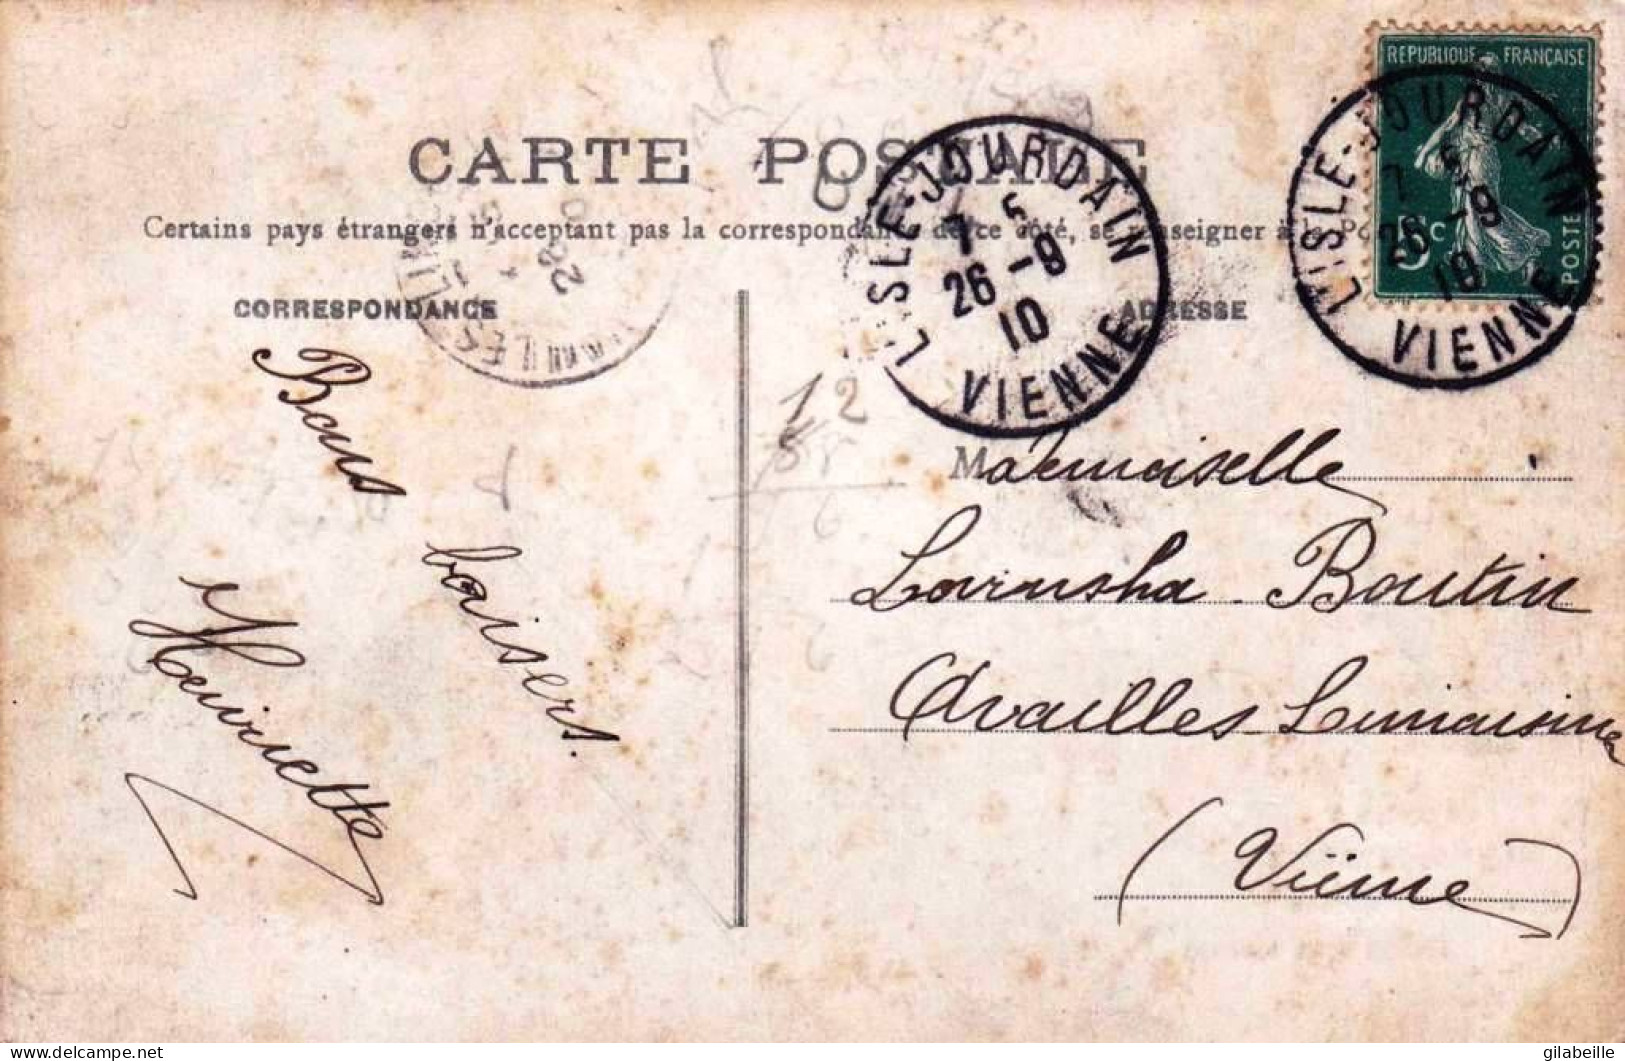 CARTE POSTALE
Certains pays étrangers n'acceptant pas la correspondance de ce côté, se renseigner à la Poste
CORRESPONDANCE
ADRESSE
REPUBLIQUE FRANÇAISE
5 c
POSTES
L'ISLE-JOURDAIN
7 5
26 -9
10
VIENNE
L'ISLE-JOURDAIN
7 5
26 -9
10
VIENNE
Bons
baisers.
Henriette
12
Mademoiselle
Boutin
Availles Limousine
(Vienne)
gilabeille